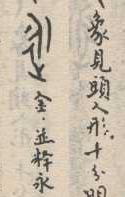 象見頭人形十分明
金並粹永